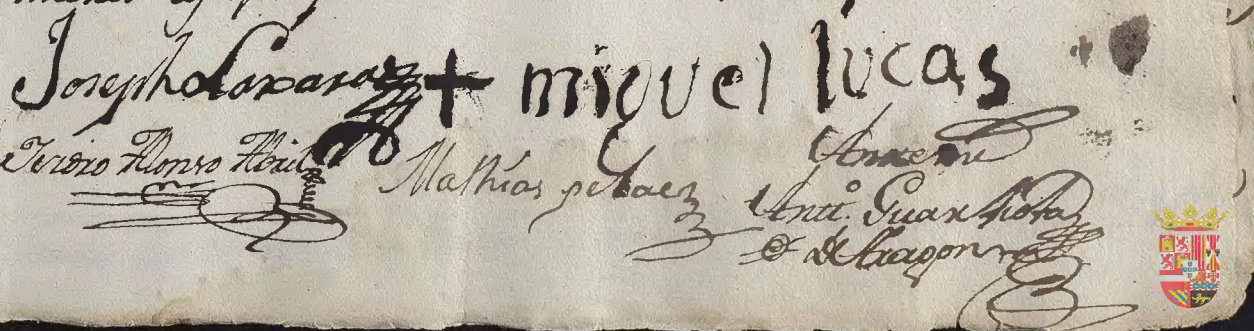 Joseph de Lara + miguel lucas
Isidro Alonso Abril Mathías pelaez Ante mi
Antt.º Guardiola
de Aragon